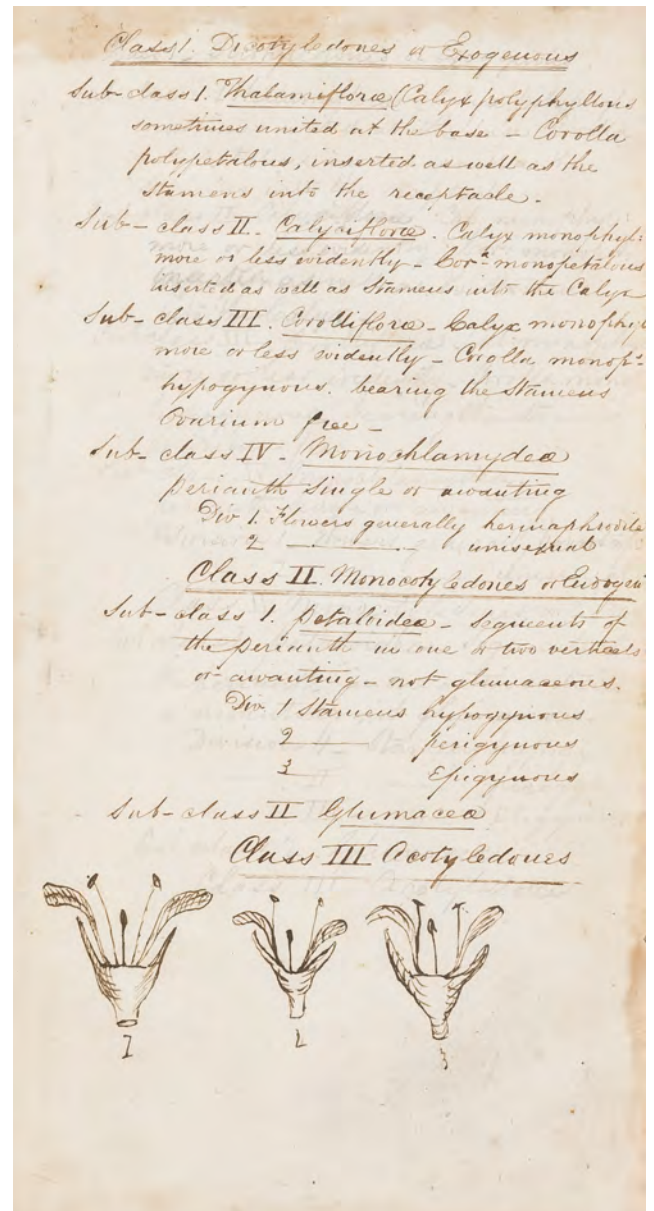 Class 1. Dicotyledones or Exogenous
Sub-class 1. Thalamifloræ (Calyx polyphyllous
sometimes united at the base - Corolla
polypetalous, inserted as well as the
Stamens into the receptacle.
Sub-class II. Calycifloræ. Calyx monophyl:
more or less evidently - Cor.ª monopetalous
inserted as well as Stamens into the Calyx
Sub-class III. Corollifloræ - Calyx monophyl
more or less evidently - Corolla monop.ˢ
hypogynous. bearing the Stamens
Ovarium free -
Sub-class IV. Monochlamydeæ
Perianth Single or awanting
Div 1. Flowers generally hermaphrodite
2 ——— unisexual
Class II. Monocotyledones or Endogen
Sub-class 1. Petaloideæ - Segments of
the perianth in one or two verticels
or awanting - not glumaceous.
Div. 1 Stamens hypogynous
2 ——— perigynous
3 ——— Epigynous
Sub-class II Glumaceæ
Class III Acotyledones
1 2 3